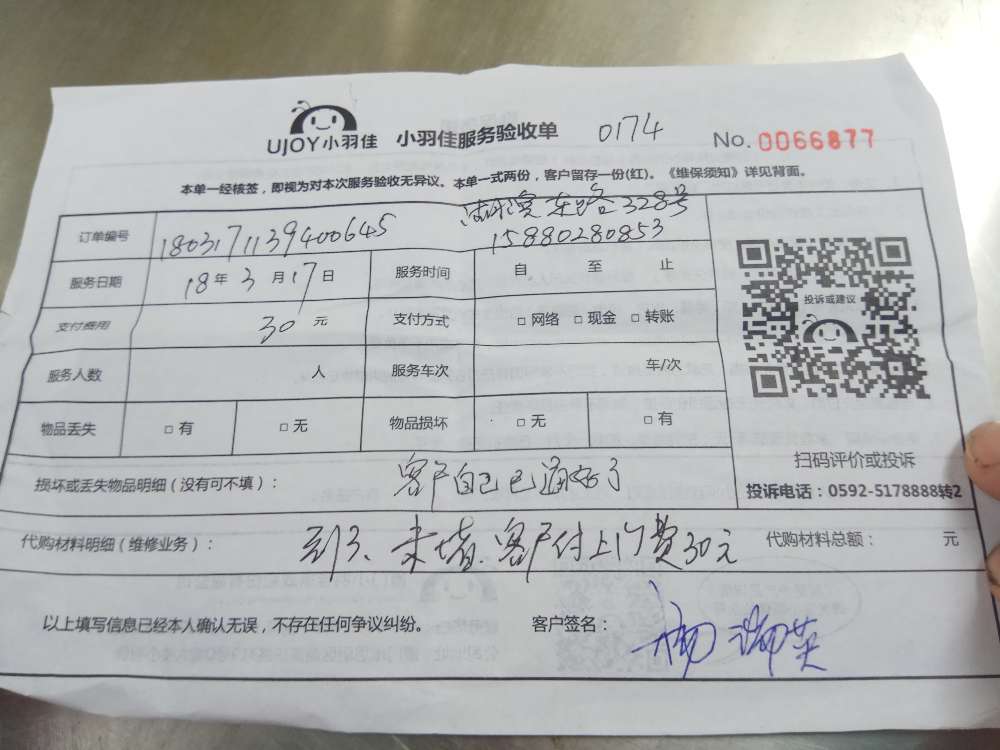 UJOY小羽佳 小羽佳服务验收单 0174 No. 0066877
本单一经核签，即视为对本次服务验收无异议。本单一式两份，客户留存一份(红)。《维保须知》详见背面。
订单编号 1803171139400645 东路328号
15880280853
服务日期 18年3月17日 服务时间 自 至 止
支付费用 30元 支付方式 □网络 □现金 □转账
投诉或建议
服务人数 人 服务车次 车/次
物品丢失 □有 □无 物品损坏 □无 □有
扫码评价或投诉
损坏或丢失物品明细（没有可不填）： 客户自己已通好了
投诉电话：0592-5178888转2
代购材料明细（维修业务）： 客户付上门费30元 代购材料总额： 元
以上填写信息已经本人确认无误，不存在任何争议纠纷。 客户签名： 杨瑞英